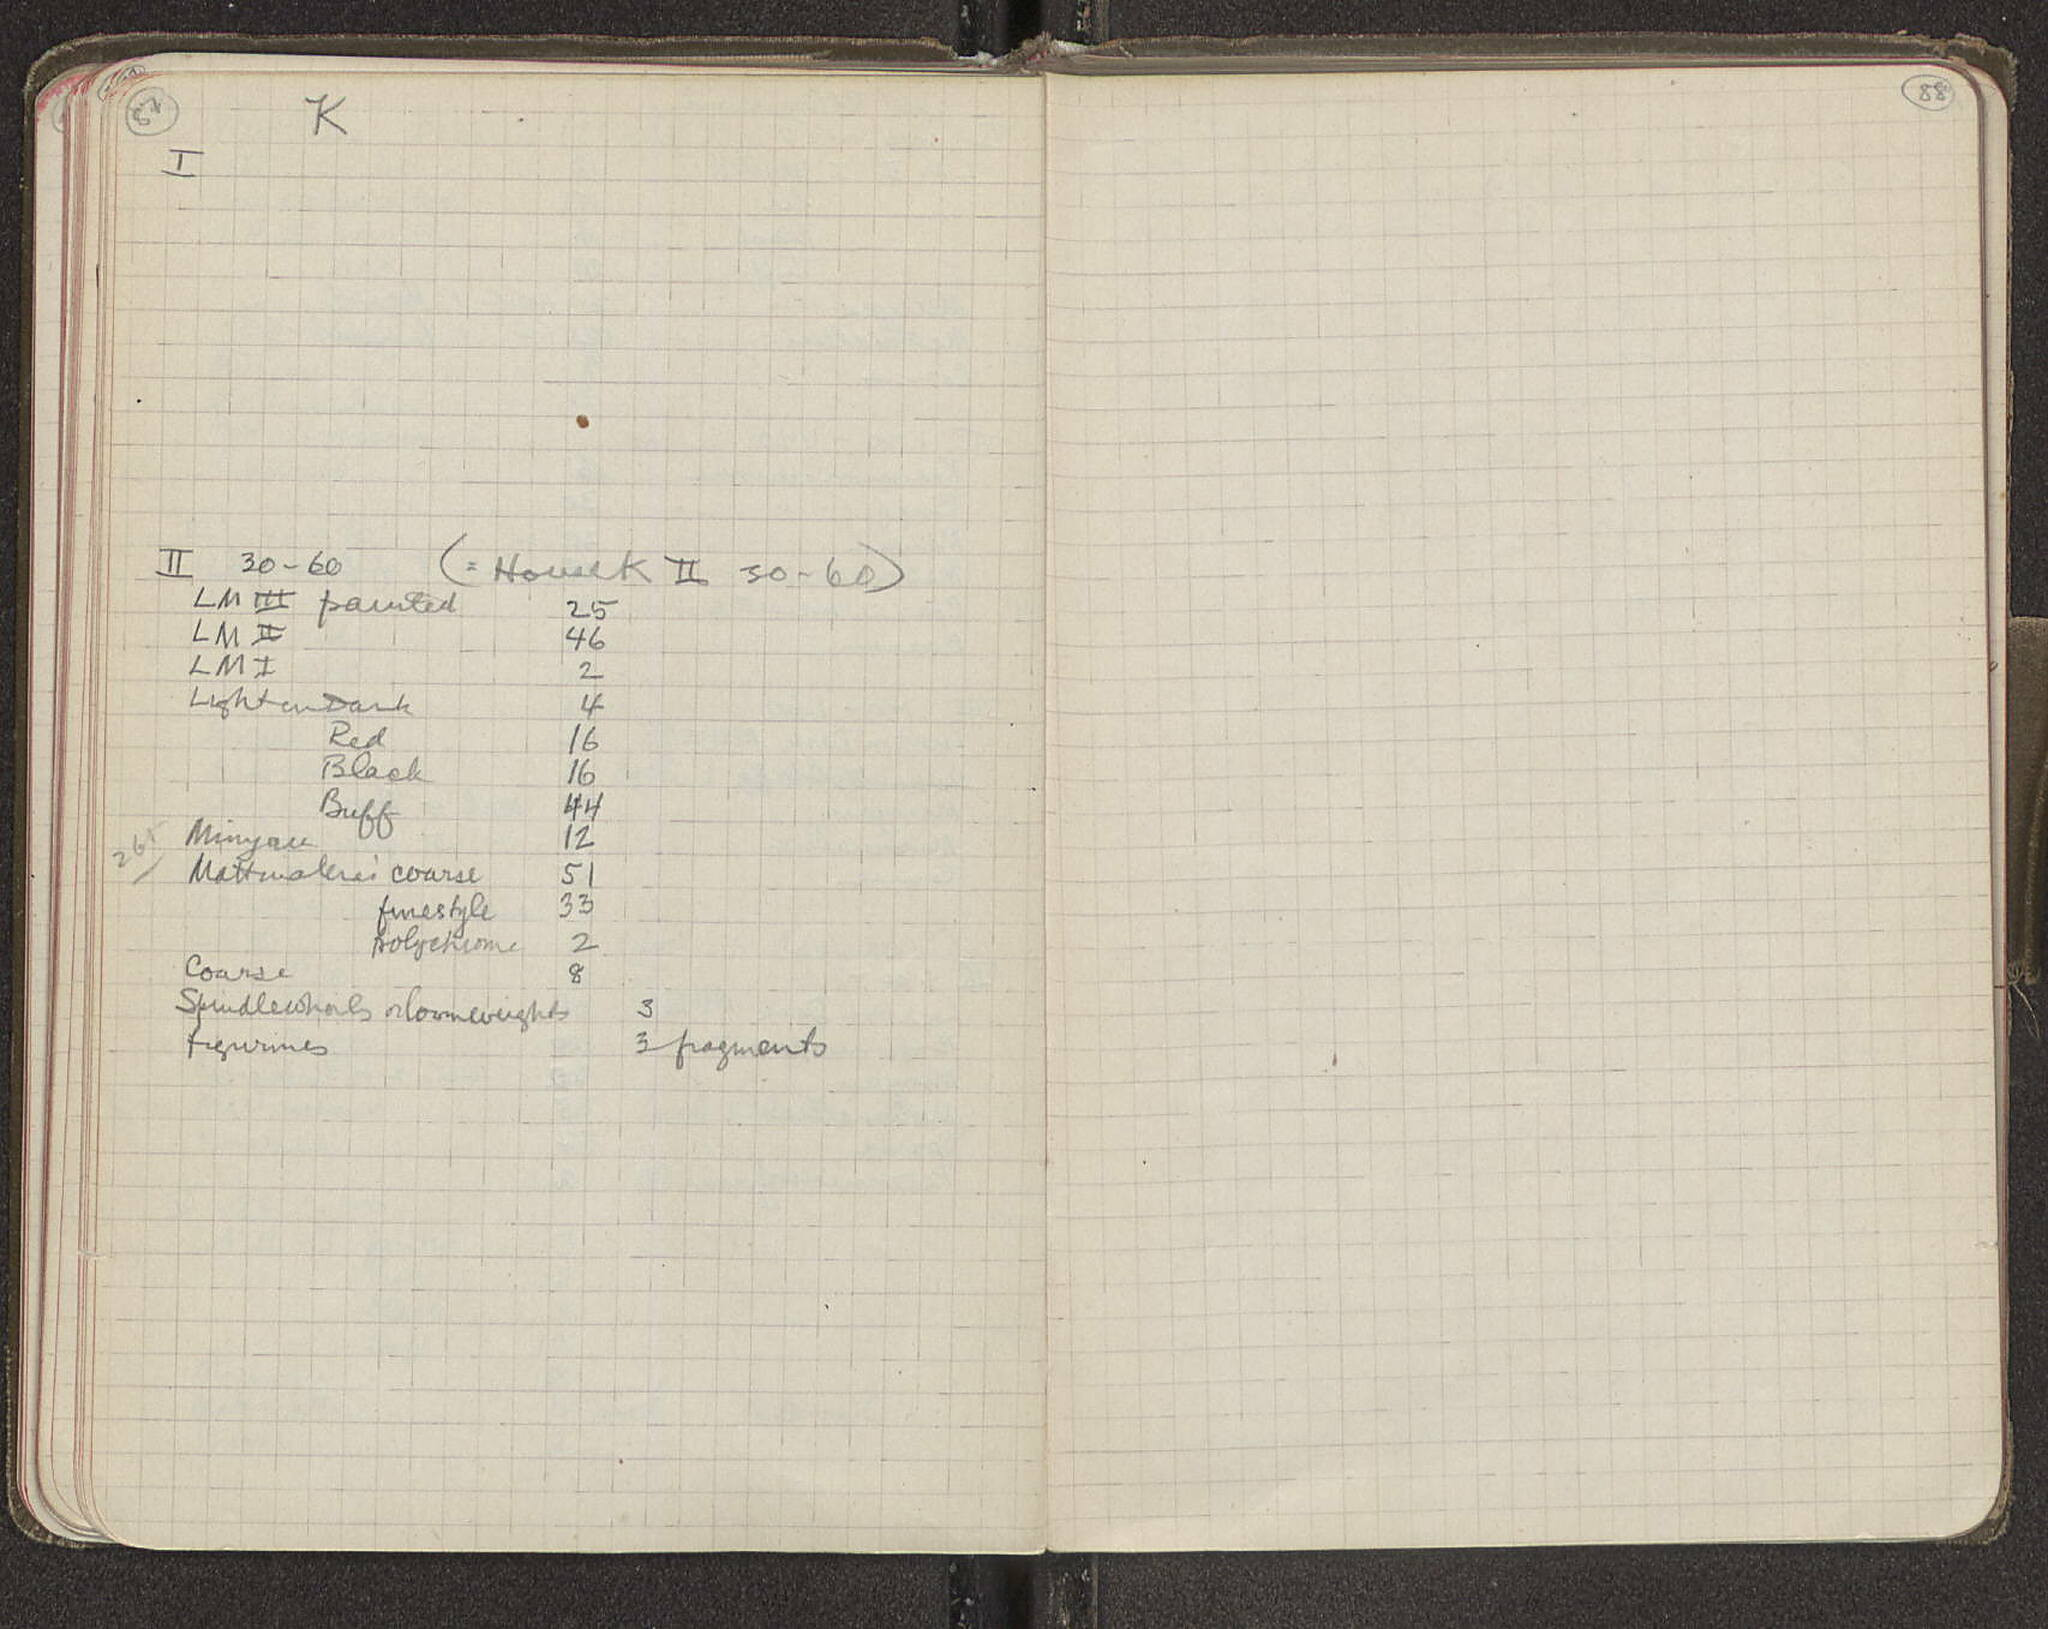 87
K
I
II 30-60 (= House K II 30-60)
LM III painted 25
LM II 46
LM I 2
Light on Dark 4
Red 16
Black 16
Buff 44
Minyan 12
265
Mattmalerei coarse 51
fine style 33
polychrome 2
Coarse 8
Spindlewhorls or loomweights 3
figurines 3 fragments
88